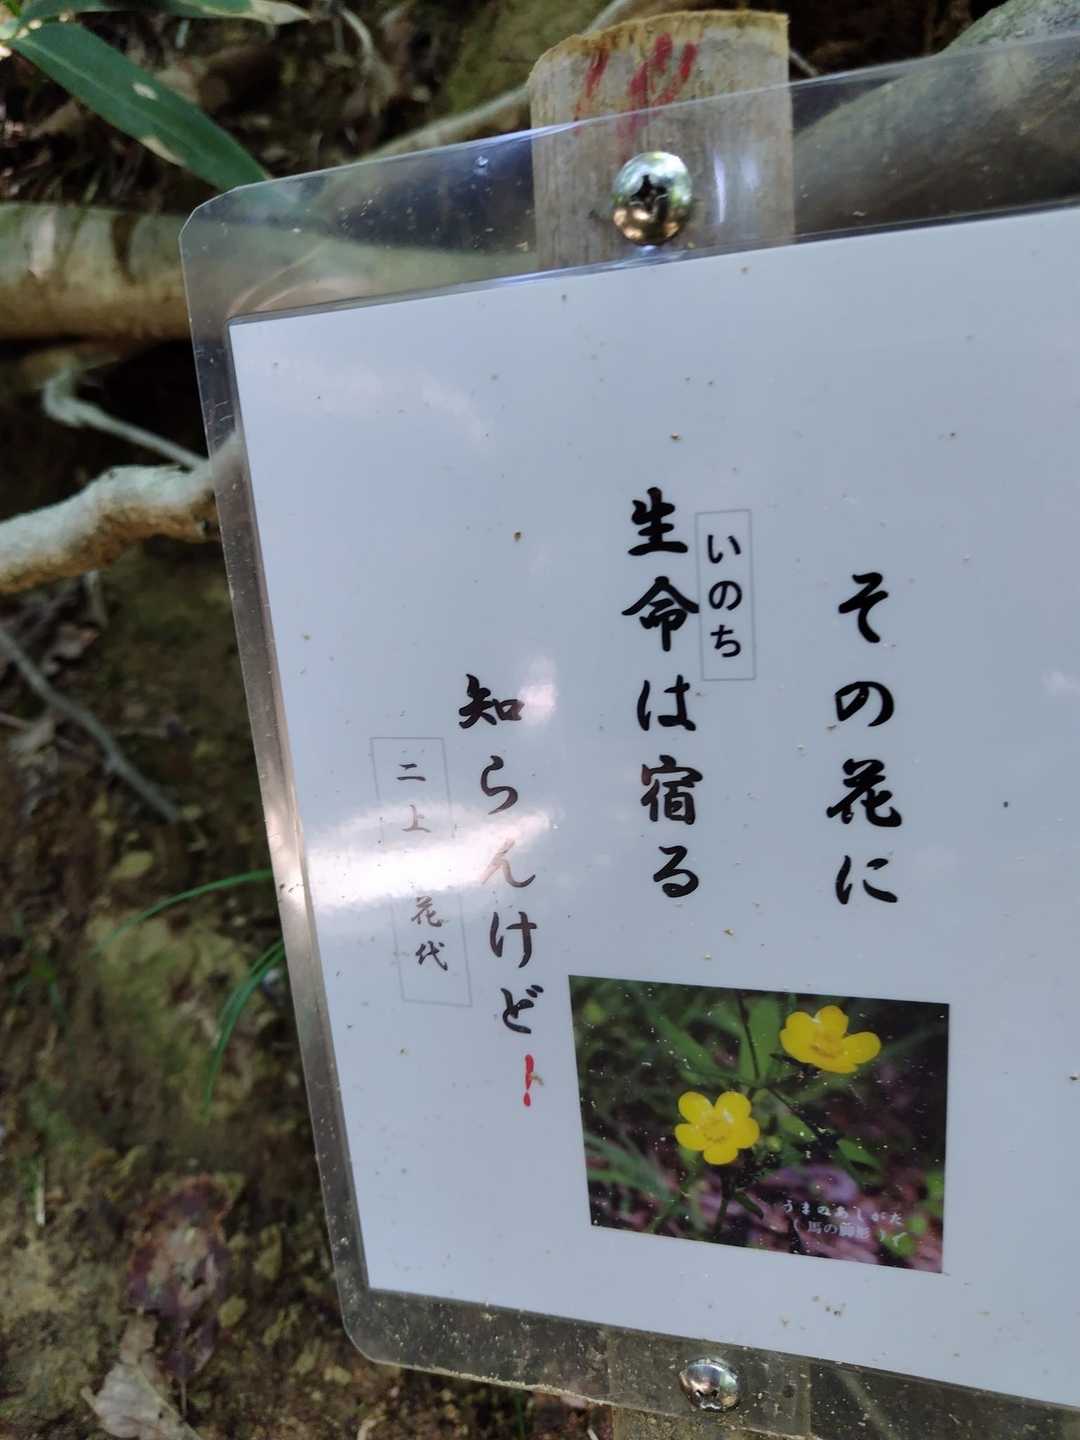 その花に
生命は宿る
いのち
知らんけど!
二上 花代
うまのあしがた
(馬の脚形)